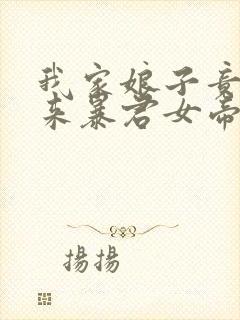 我家娘子竟
来暴君女帝
揚揚